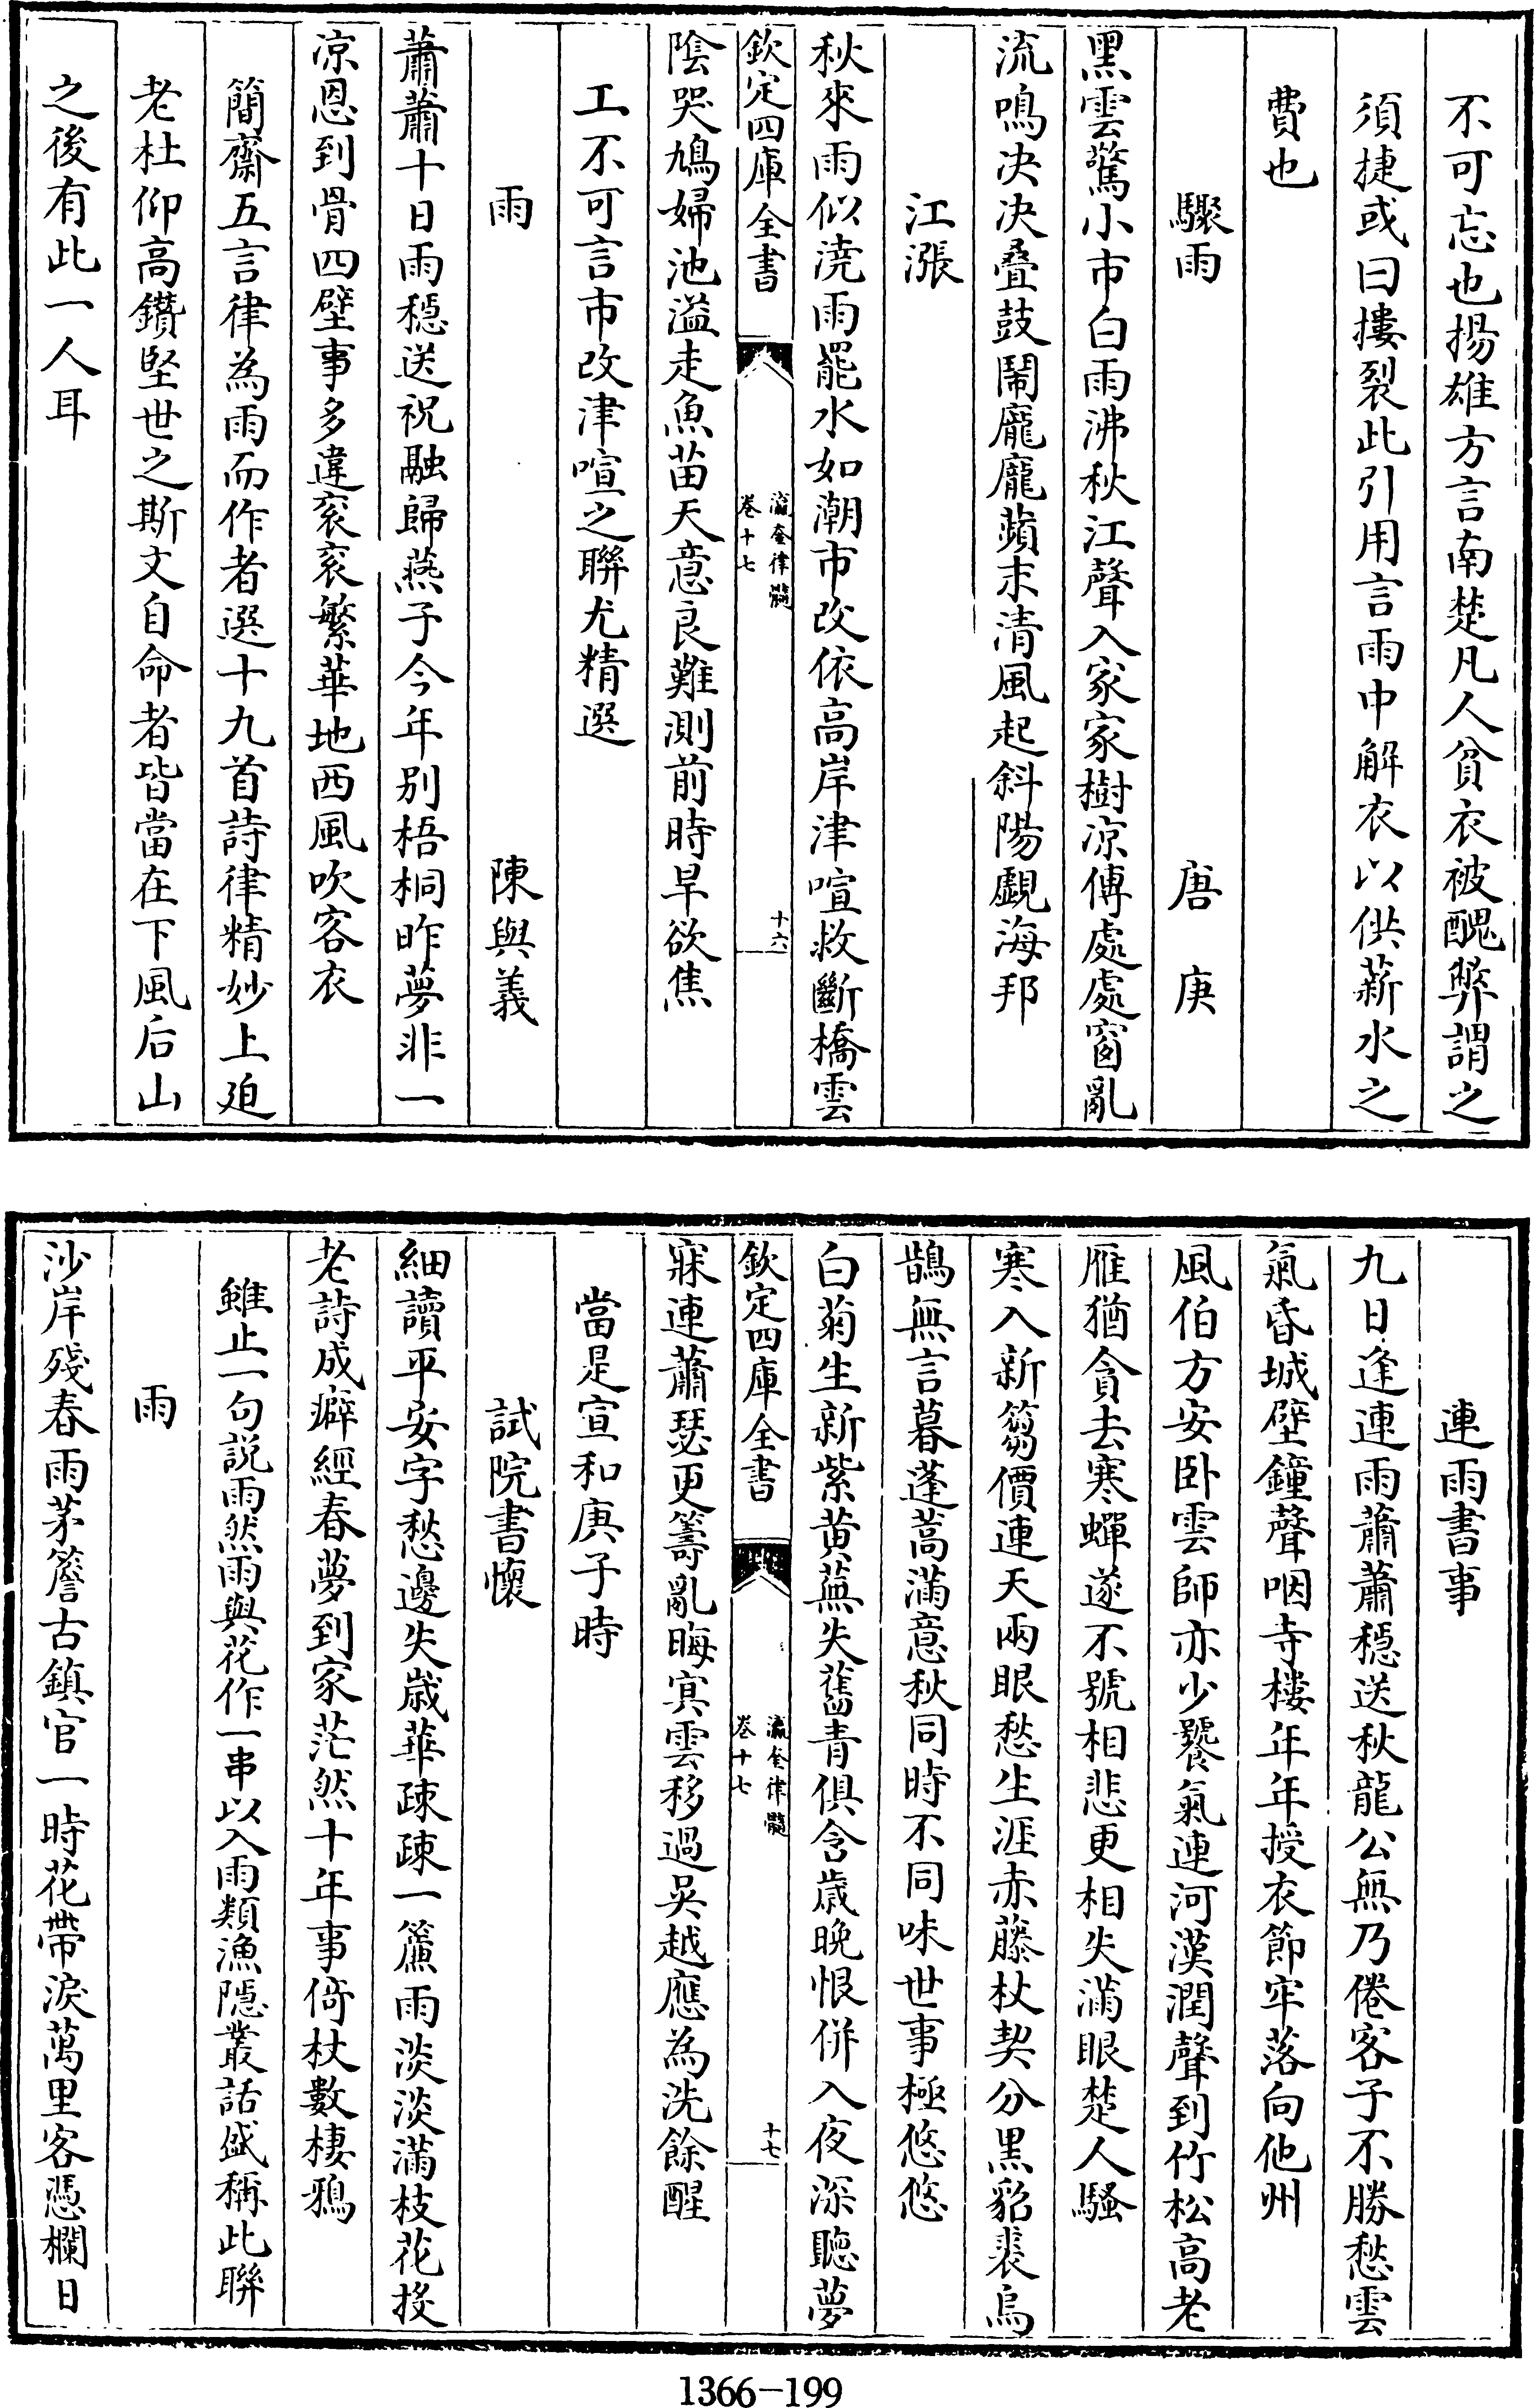 不可忘也揚雄方言南楚凡人貧衣被醜弊謂之
須捷或曰摟裂此引用言雨中解衣以供薪水之
費也
驟雨 唐庚
黑雲驚小市白雨沸秋江聲入家家樹凉傅處處窗亂
流鳴决决叠鼓鬧龎龎蘋末清風起斜陽覷海邦
江漲
秋來雨似澆雨罷水如潮市改依高岸津喧救斷橋雲
欽定四庫全書 瀛奎律髓 卷十七 十六
陰哭鳩婦池溢走魚苗天意良難測前時旱欲焦
工不可言市改津喧之聯尤精選
雨 陳與義
蕭蕭十日雨穏送祝融歸燕子今年别梧桐昨夢非一
凉恩到骨四壁事多違衮衮繁華地西風吹客衣
簡齋五言律為雨而作者選十九首詩律精妙上廹
老杜仰高鑽堅世之斯文自命者皆當在下風后山
之後有此一人耳
連雨書事
九日逢連雨蕭蕭穏送秋龍公無乃倦客子不勝愁雲
氣昏城壁鐘聲咽寺樓年年授衣節牢落向他州
風伯方安卧雲師亦少饕氣連河漢潤聲到竹松高老
雁猶貪去寒蟬遂不號相悲更相失滿眼楚人騷
寒入新篘價連天兩眼愁生涯赤藤杖契分黑貂裘烏
鵲無言暮蓬蒿滿意秋同時不同味世事極悠悠
白菊生新紫黄蕪失舊青俱含歲晚恨併入夜深聽夢
欽定四庫全書 瀛奎律髓 卷十七 十七
寐連蕭瑟更籌亂晦冥雲移過吳越應為洗餘醒
當是宣和庚子時
試院書懷
細讀平安字愁邊失歲華疎疎一簾雨淡淡滿枝花投
老詩成癖經春夢到家茫然十年事倚杖數棲鴉
雖止一句説雨然雨與花作一串以入雨類漁隱叢話盛稱此聯
雨
沙岸殘春雨茅簷古鎮官一時花帶淚萬里客憑欄日
1366-199